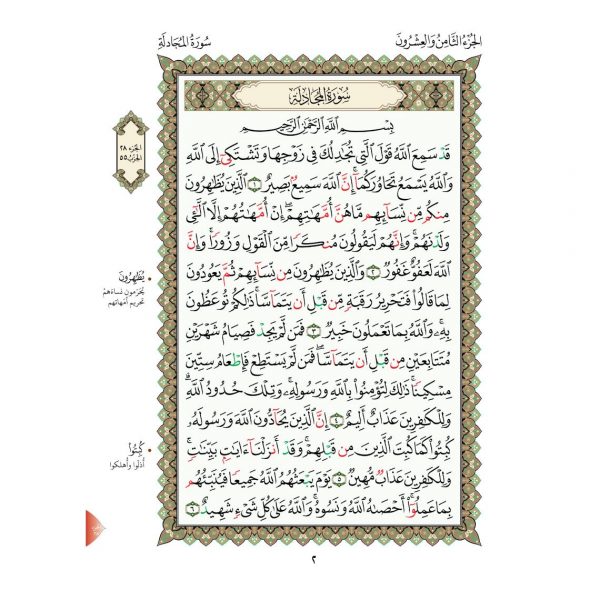 الجزء الثامن والعشرون
سورة المجادلة
سُورَةُ المُجَادلَةِ
بِسْمِ اللَّهِ الرَّحْمَٰنِ الرَّحِيمِ
قَدْ سَمِعَ اللَّهُ قَوْلَ الَّتِي تُجَٰدِلُكَ فِي زَوْجِهَا وَتَشْتَكِي إِلَى اللَّهِ
وَاللَّهُ يَسْمَعُ تَحَاوُرَكُمَا إِنَّ اللَّهَ سَمِيعٌ بَصِيرٌ ١ الَّذِينَ يُظَٰهِرُونَ
مِنكُم مِّن نِّسَائِهِم مَّا هُنَّ أُمَّهَٰتِهِمْ إِنْ أُمَّهَٰتُهُمْ إِلَّا الَّٰئِي
وَلَدْنَهُمْ وَإِنَّهُمْ لَيَقُولُونَ مُنكَرًا مِّنَ الْقَوْلِ وَزُورًا وَإِنَّ
اللَّهَ لَعَفُوٌّ غَفُورٌ ٢ وَالَّذِينَ يُظَٰهِرُونَ مِن نِّسَائِهِمْ ثُمَّ يَعُودُونَ
لِمَا قَالُوا فَتَحْرِيرُ رَقَبَةٍ مِّن قَبْلِ أَن يَتَمَاسَّا ذَٰلِكُمْ تُوعَظُونَ
بِهِ وَاللَّهُ بِمَا تَعْمَلُونَ خَبِيرٌ ٣ فَمَن لَّمْ يَجِدْ فَصِيَامُ شَهْرَيْنِ
مُتَتَابِعَيْنِ مِن قَبْلِ أَن يَتَمَاسَّا فَمَن لَّمْ يَسْتَطِعْ فَإِطْعَامُ سِتِّينَ
مِسْكِينًا ذَٰلِكَ لِتُؤْمِنُوا بِاللَّهِ وَرَسُولِهِ وَتِلْكَ حُدُودُ اللَّهِ
وَلِلْكَٰفِرِينَ عَذَابٌ أَلِيمٌ ٤ إِنَّ الَّذِينَ يُحَادُّونَ اللَّهَ وَرَسُولَهُ
كُبِتُوا كَمَا كُبِتَ الَّذِينَ مِن قَبْلِهِمْ وَقَدْ أَنزَلْنَا ءَايَٰتٍ بَيِّنَٰتٍ
وَلِلْكَٰفِرِينَ عَذَابٌ مُّهِينٌ ٥ يَوْمَ يَبْعَثُهُمُ اللَّهُ جَمِيعًا فَيُنَبِّئُهُم
بِمَا عَمِلُوا أَحْصَىٰهُ اللَّهُ وَنَسُوهُ وَاللَّهُ عَلَىٰ كُلِّ شَيْءٍ شَهِيدٌ ٦
الجزء ٢٨
الحزب ٥٥
يُظَٰهِرُونَ
يحرّمون نساءهم
تحريم أمهاتهم
كُبِتُوا
أذلّوا وأهلكوا
٢